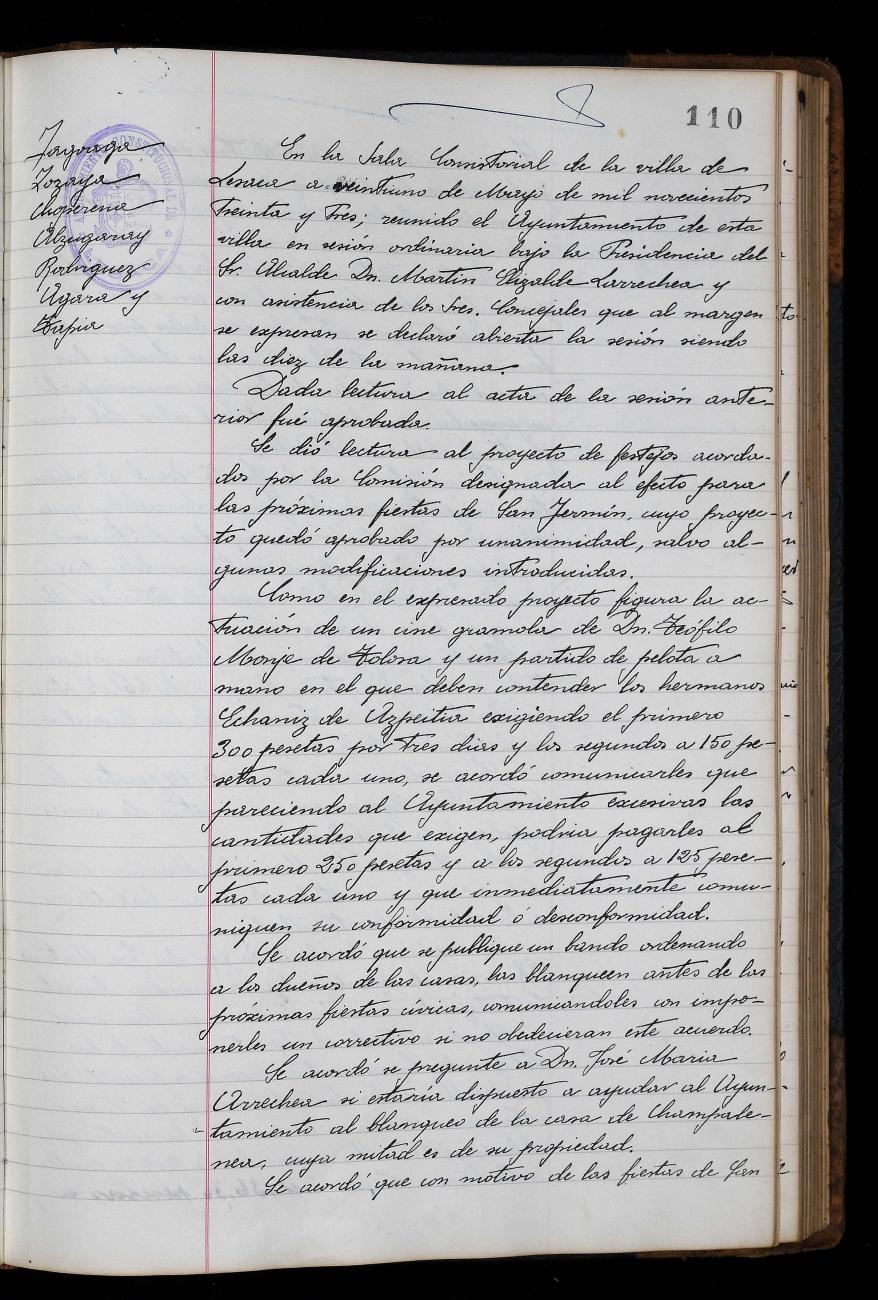 110
Jagoaga
Zozaya
Choperena
Elzugaray
Rodriguez
Agara y
Tapia
En la Sala Consistorial de la villa de
Lesaca a veintiuno de Mayo de mil novecientos
treinta y tres; reunido el Ayuntamiento de esta
villa en sesión ordinaria bajo la Presidencia del
Sr. Alcalde Dn. Martin Elizalde Larrechea y
con asistencia de los Sres. Concejales que al margen
se expresan se declaró abierta la sesión siendo
las diez de la mañana.
Dada lectura al acta de la sesión ante-
rior fué aprobada.
Se dió lectura al proyecto de festejos acorda-
dos por la Comisión designada al efecto para
las próximas fiestas de San Fermín, cuyo proyec-
to quedó aprobado por unanimidad, salvo al-
gunas modificaciones introducidas.
Como en el expresado proyecto figura la ac-
tuación de un cine gramola de Dn. Teófilo
Monje de Tolosa y un partido de pelota a
mano en el que deben contender los hermanos
Echaniz de Azpeitia exigiendo el primero
300 pesetas por tres dias y los segundos a 150 pe-
setas cada uno, se acordó comunicarles que
pareciendo al Ayuntamiento excesivas las
cantidades que exigen, podria pagarles al
primero 250 pesetas y a los segundos a 125 pese-
tas cada uno y que inmediatamente comu-
niquen su conformidad ó desconformidad.
Se acordó que se publique un bando ordenando
a los dueños de las casas, las blanqueen antes de las
próximas fiestas civicas, comunicandoles con impo-
nerles un correctivo si no obedecieran este acuerdo.
Se acordó se pregunte a Dn. José Maria
Arrechea si estaría dispuesto a ayudar al Ayun-
tamiento al blanqueo de la casa de Champale-
nea, cuya mitad es de su propiedad.
Se acordó que con motivo de las fiestas de San